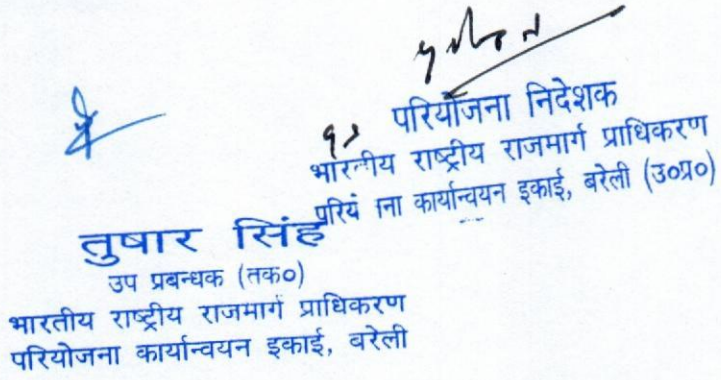 परियोजना निदेशक
भारतीय राष्ट्रीय राजमार्ग प्राधिकरण
परियोजना कार्यान्वयन इकाई, बरेली (उ०प्र०)
तुषार सिंह
उप प्रबन्धक (तक०)
भारतीय राष्ट्रीय राजमार्ग प्राधिकरण
परियोजना कार्यान्वयन इकाई, बरेली